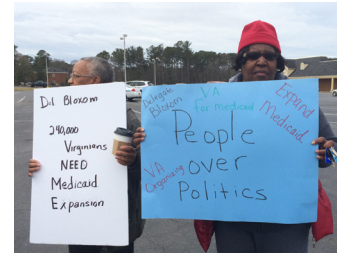 Del Bloxom
240,000
Virginians
NEED
Medicaid
Expansion
Delegate
Bloxom
VA
for medicaid
Expand
Medicaid
People
over
Politics
VA
Organizing